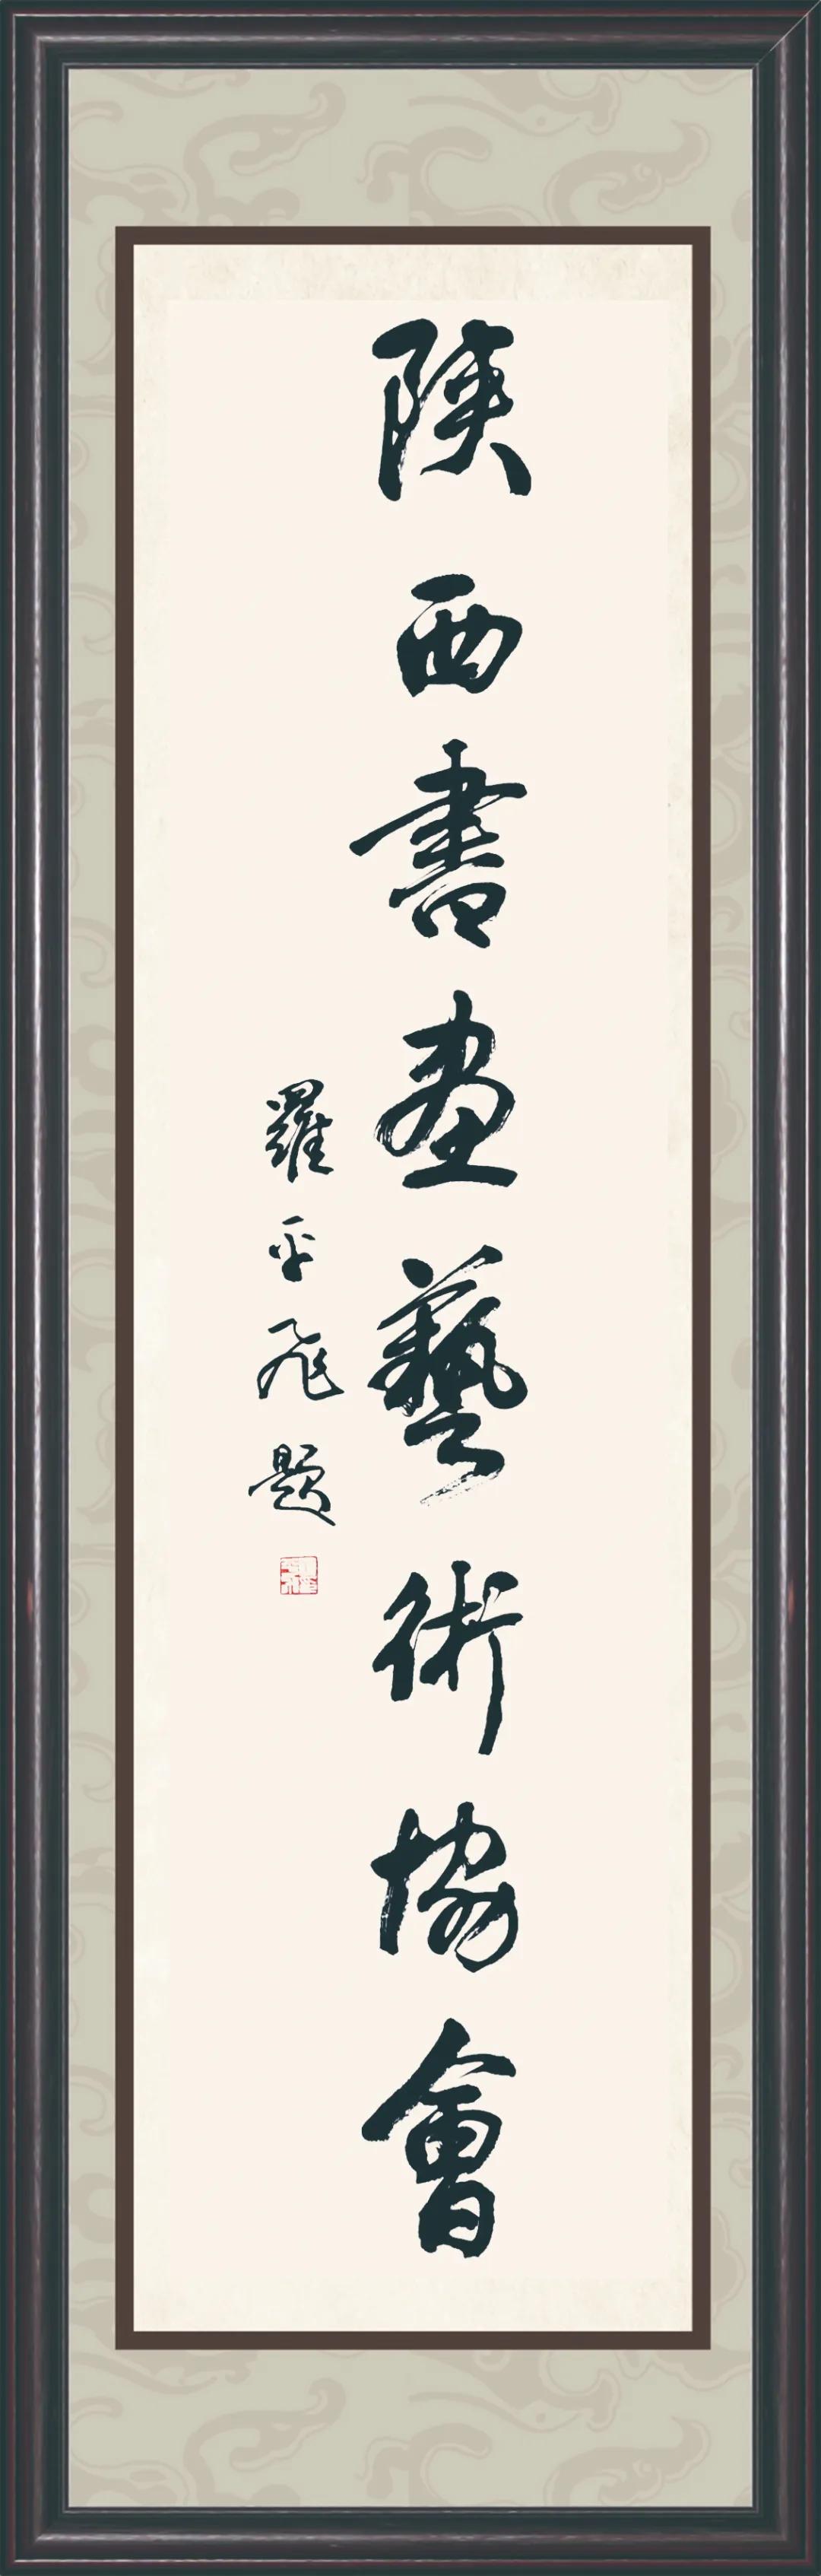 陝西書畫藝術協會
羅平飛題